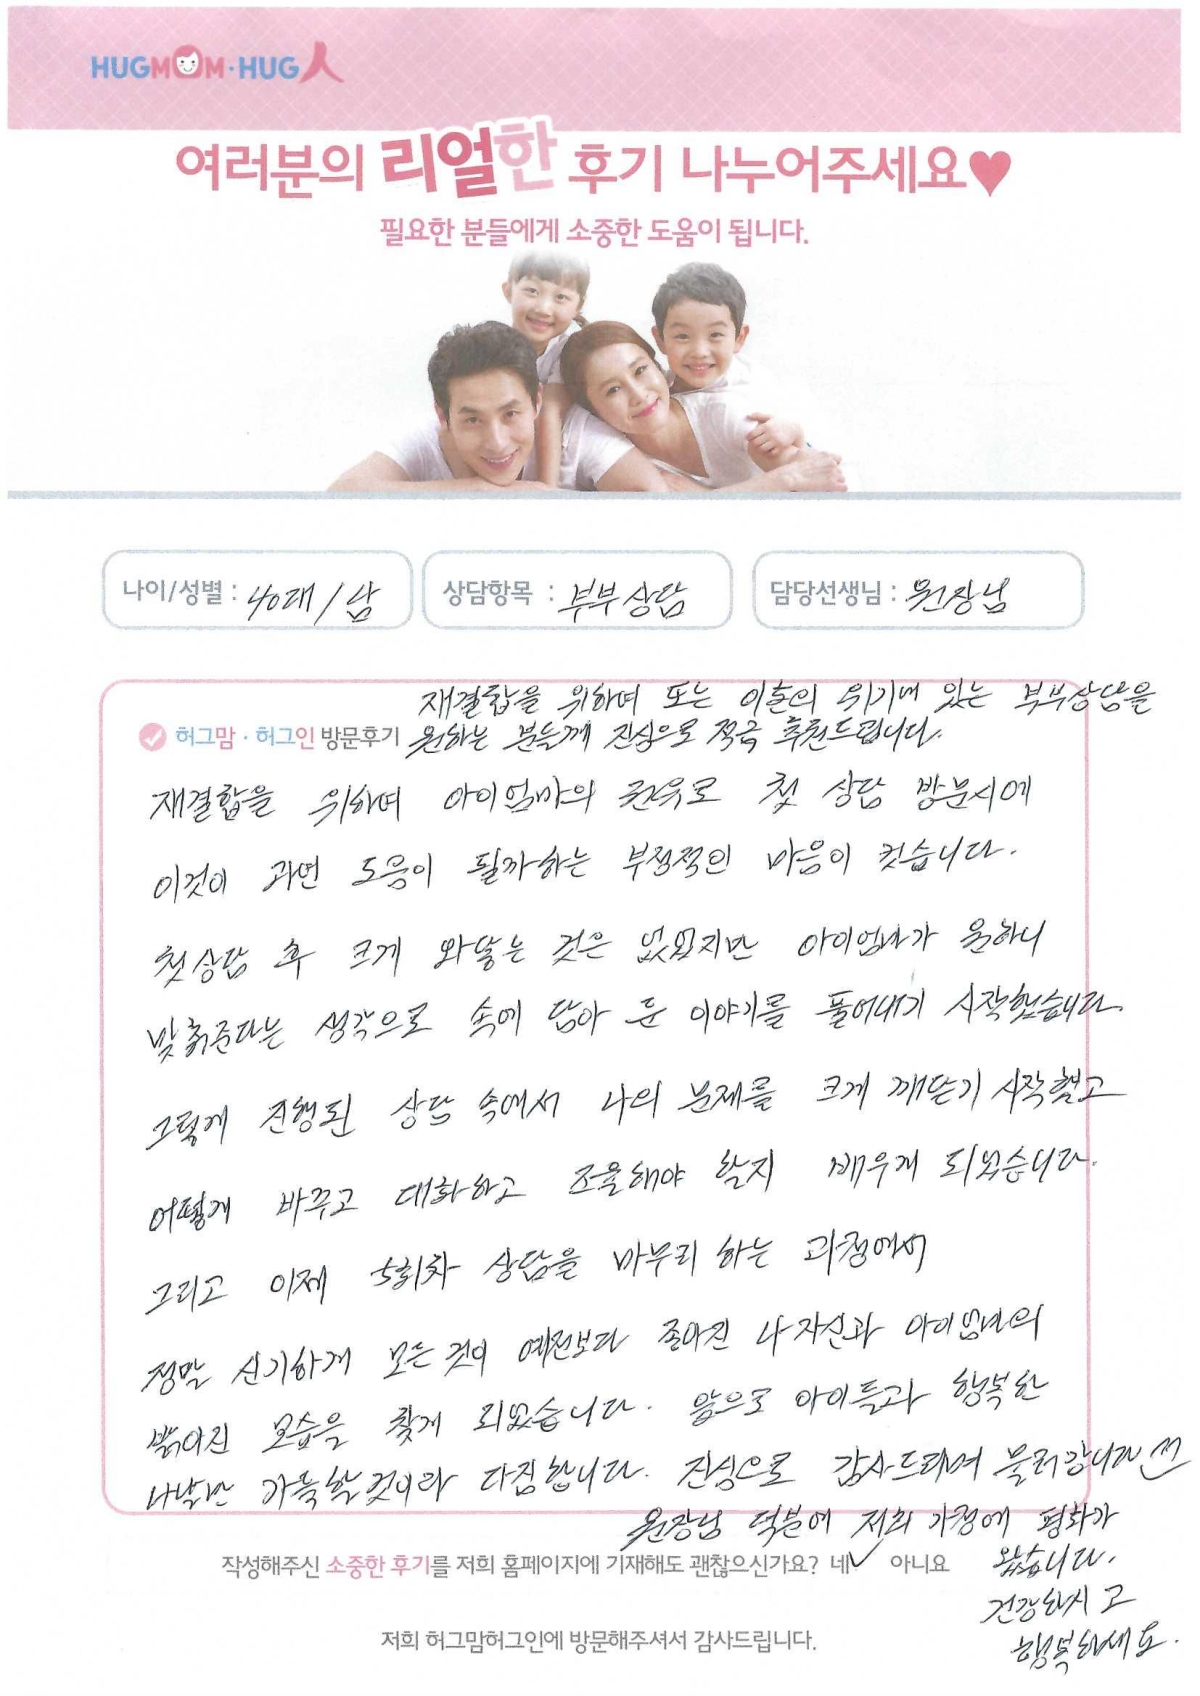 HUGMOM·HUG人
여러분의 리얼한 후기 나누어주세요♥
필요한 분들에게 소중한 도움이 됩니다.
나이/성별 : 40대/남
상담항목 : 부부상담
담당선생님 : 원장님
재결합을 위하여 또는 이혼의 위기에 있는 부부상담을
허그맘·허그인 방문후기 원하는 분들께 진심으로 적극 추천드립니다.
재결합을 위하여 아이엄마의 권유로 첫 상담 방문시에
이것이 과연 도움이 될까하는 부정적인 마음이 컷습니다.
첫상담 후 크게 와닿는 것은 없었지만 아이엄마가 원하니
맞춰준다는 생각으로 속에 담아 둔 이야기를 풀어내기 시작했습니다.
그렇게 진행된 상담 속에서 나의 문제를 크게 깨닫기 시작했고
어떻게 바꾸고 대화하고 조율해야 할지 배우게 되었습니다.
그리고 이제 5회차 상담을 마무리 하는 과정에서
정말 신기하게 모든 것이 예전보다 좋아진 나 자신과 아이엄마의
밝아진 모습을 찾게 되었습니다. 앞으로 아이들과 행복한
나날만 가득할것이라 다짐합니다. 진심으로 감사드리며 물러갑니다
원장님 덕분에 저희 가정에 평화가
왔습니다.
건강하시고
행복하세요.
작성해주신 소중한 후기를 저희 홈페이지에 기재해도 괜찮으신가요? 네✓ 아니요
저희 허그맘허그인에 방문해주셔서 감사드립니다.